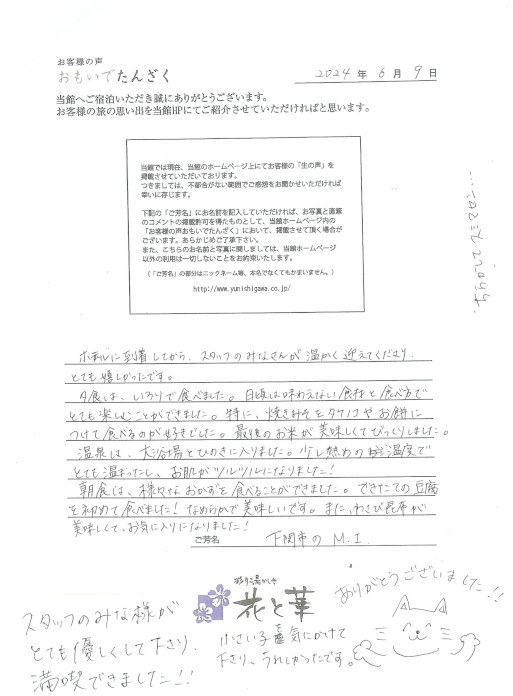 お客様の声
おもいでたんざく
2024年6月9日
当館へご宿泊いただき誠にありがとうございます。
お客様の旅の思い出を当館HPにてご紹介させていただければと思います。
当館では現在、当館のホームページ上にてお客様の「生の声」を
掲載させていただいております。
つきましては、不都合がない範囲でご感想をお聞かせいただければ
幸いに存じます。
下記の「ご芳名」にお名前を記入していただければ、お写真と直筆
のコメントの掲載許可を得たものとして、当館ホームページ内の
「お客様の声おもいでたんざく」において、掲載させて頂く場合が
ございます。あらかじめご了承下さい。
また、こちらのお名前と写真に関しましては、当館ホームページ
以外の利用は一切しないことをお約束いたします。
(「ご芳名」の部分はニックネーム等、本名でなくてもかまいません。)
http://www.yunishigawa.co.jp/
ちらかしてしまってスミマセン…
ホテルに到着してから、スタッフのみなさんが温かく迎えてくださり
とても嬉しかったです。
夕食は、いろりで食べました。日頃は味わえない食材と食べ方で
とても楽しむことができました。特に、焼きみそをタケノコやお餅に
つけて食べるのが好きでした。最後のお米が美味しくてびっくりしました。
温泉は、大浴場とひのきに入りました。少し熱めの温度で
とても温まったし、お肌がツルツルになりました!
朝食は、様々なおかずを食べることができました。できたての豆腐
を初めて食べました!なめらかで美味しいです。また、わさび昆布が
美味しくて、お気に入りになりました!
ご芳名 下関市のM.I
彩り湯かしき
花と華
ありがとうございました!!
スタッフのみな様が
とても優しくして下さり
満喫できました!!
小さい子を気にかけて
下さり、うれしかったです。